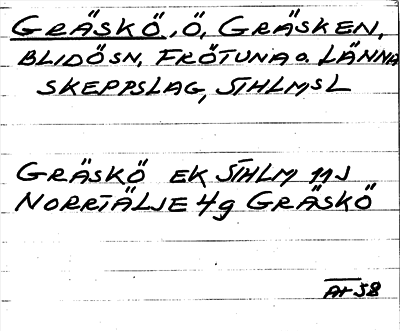 GRÄSKÖ, Ö, GRÄSKEN,
BLIDÖ SN, FRÖTUNA O. LÄNNA
SKEPPSLAG, STHLMS L
GRÄSKÖ EK STHLM 11J
NORRTÄLJE 4g GRÄSKÖ
58